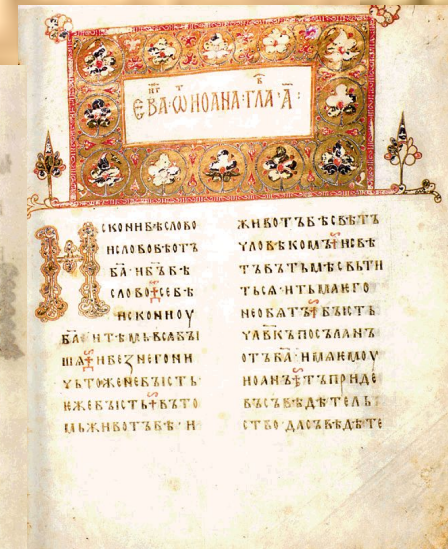 ЕВА· Ѡ ИОАНА· ГЛА· А҃:
ИСКОНИ БѢ СЛОВО
И СЛОВО БѢ ОТЪ
БА҃· И БЪ҃ БѢ
СЛОВО· СЕ БѢ
ИСКОНИ ОУ
БА҃· И ТѢМЬ ВЬСА БЪІ
ША· И БЕЗ НЕГО НИ
ЧЬТОЖЕ НЕ БЪІСТЬ·
ЕЖЕ БЪІСТЬ· ВЪ ТО
МЬ ЖИВОТЪ БѢ· И
ЖИВОТЪ БѢ СВѢТЪ
ЧЛОВѢКОМЪ· И СВѢ
ТЪ ВЪ ТЬМѢ СВЬТИ
ТЬСѦ· И ТЬМА ЕГО
НЕ ОБѦТЪ· БЪІСТЬ
ЧЛВ҃КЪ ПОСЪЛАНЪ
ОТЪ БА҃· ИМѦ ЕМОУ
ИОАНЪ· ТЪ ПРИДЕ
ВЪ СЪВѢДѢТЕЛЬ
СТВО· ДА СЪВѢДѢТЕ